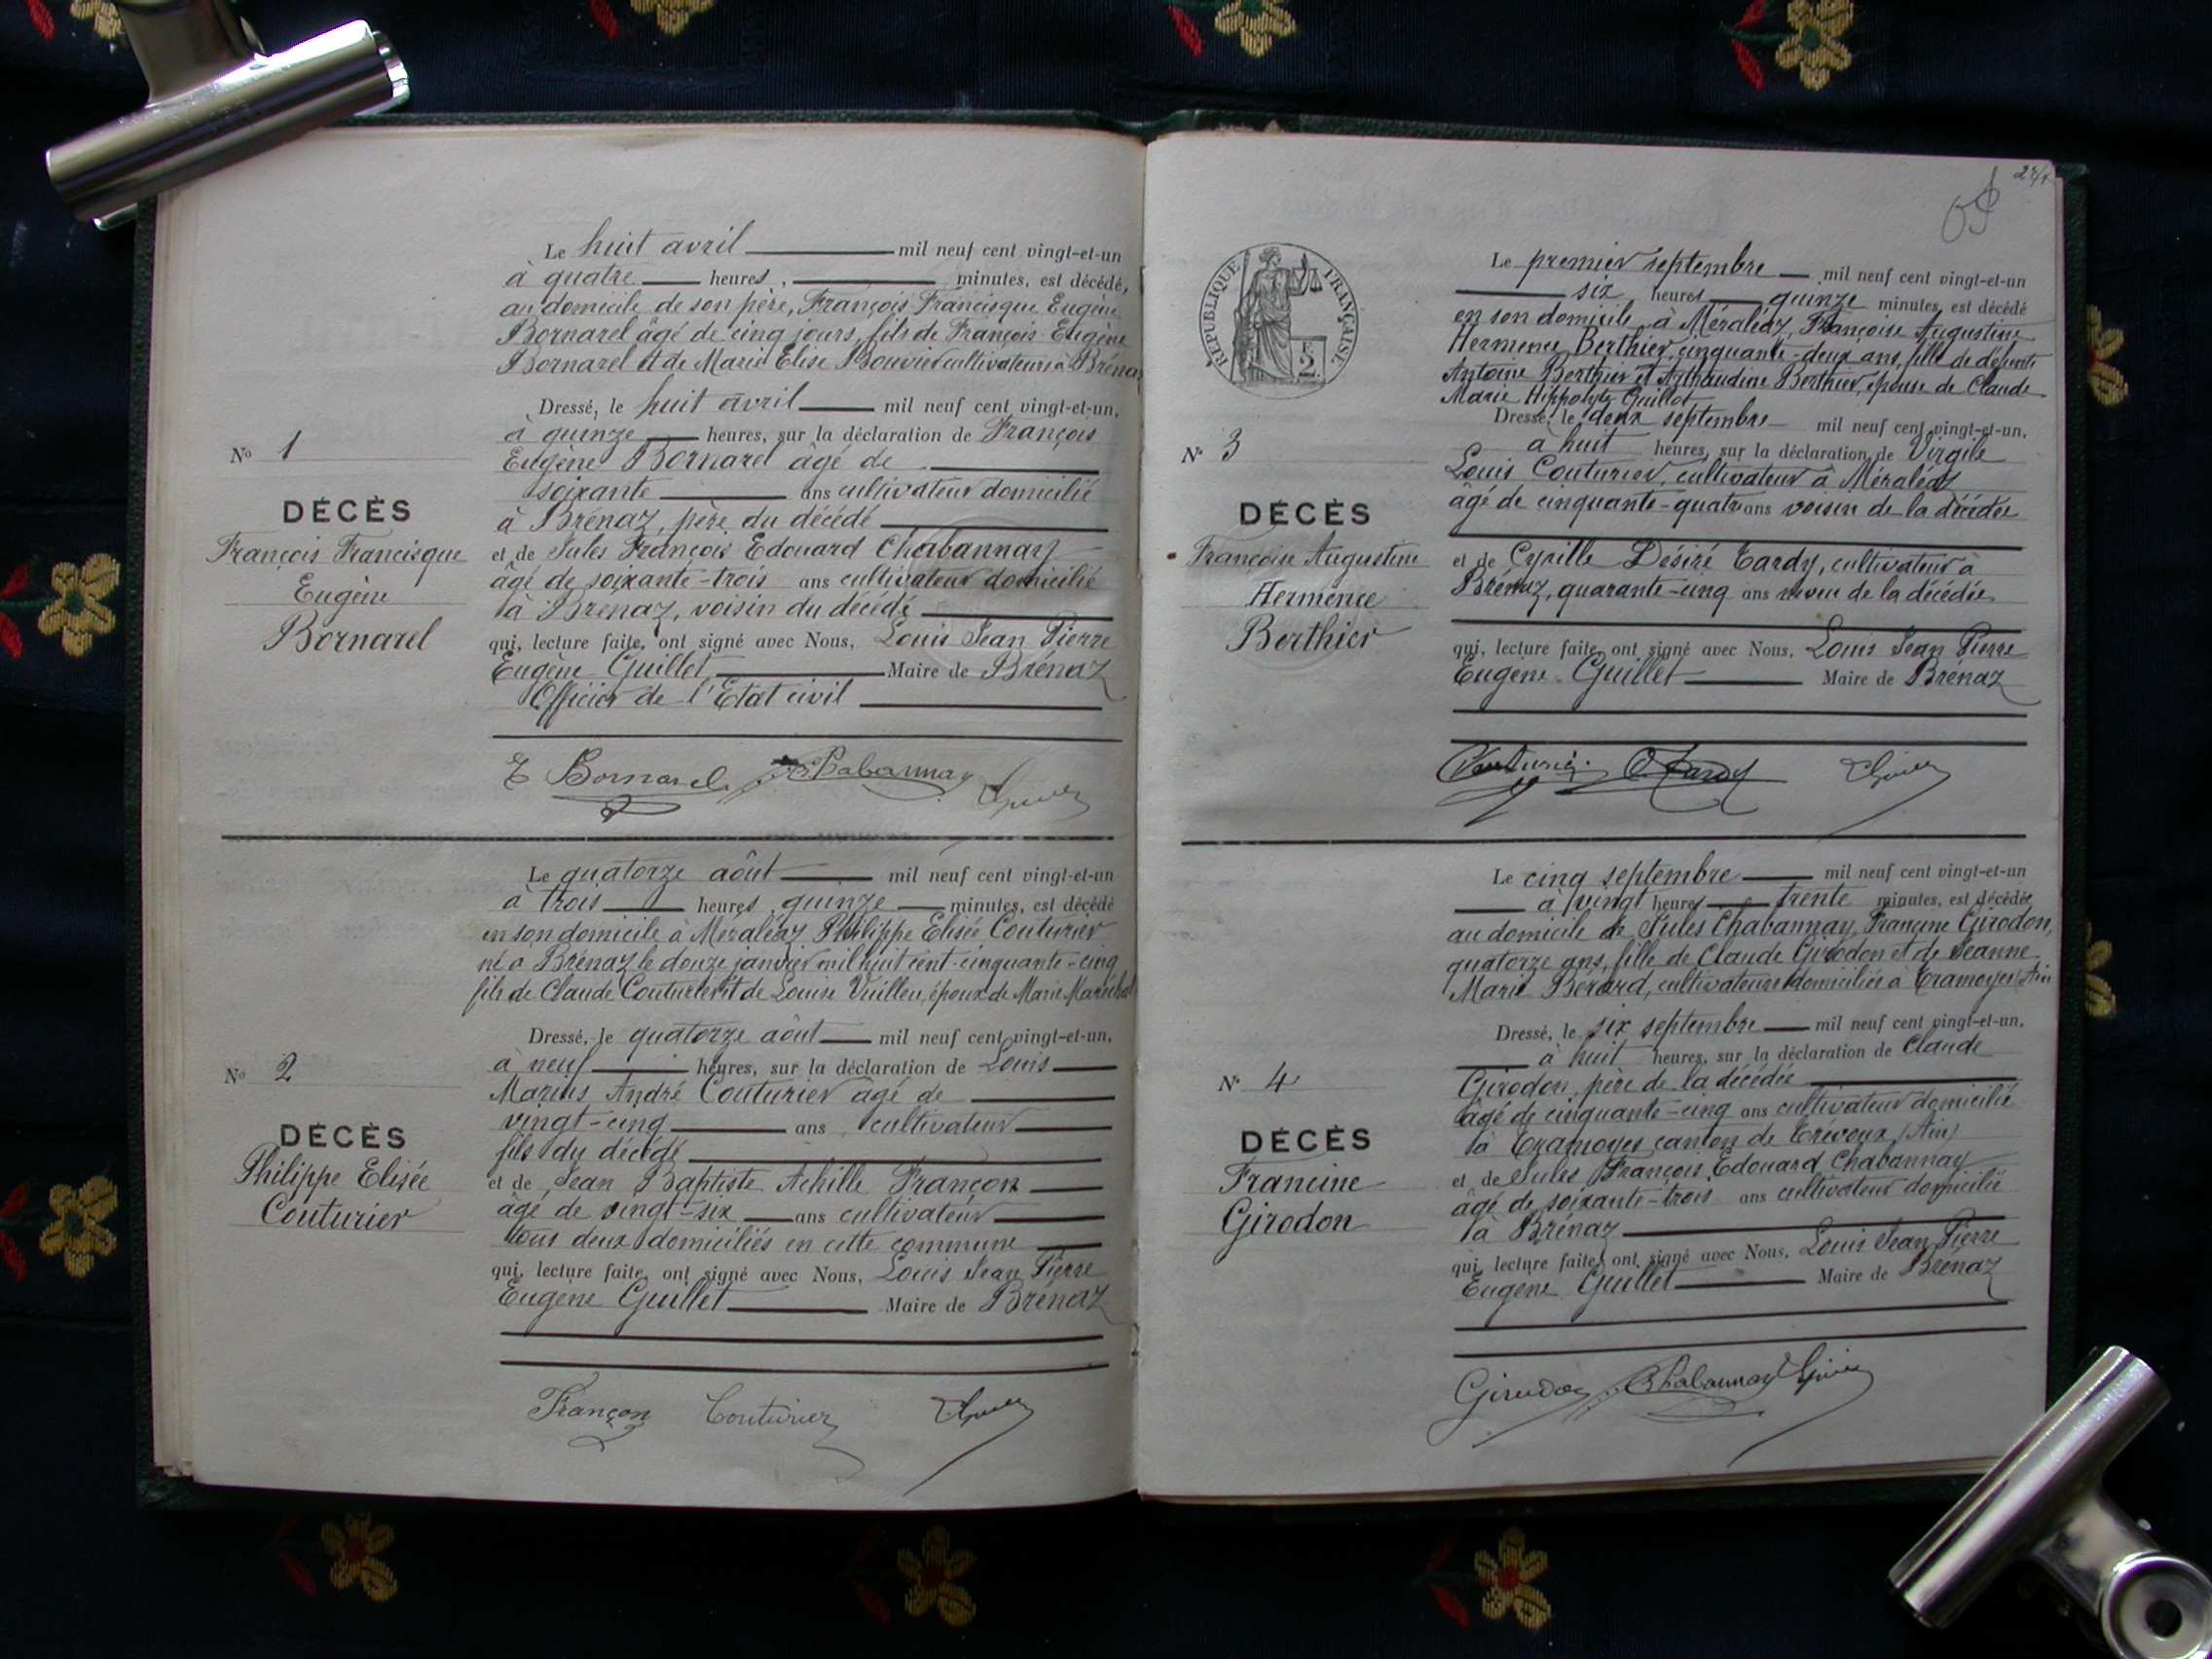 Le huit avril mil neuf cent vingt-et-un
à quatre heures, minutes, est décédé,
au domicile de son père, François Francisque Eugène
Bornarel âgé de cinq jours, fils de François Eugène
Bornarel et de Marie Elise Bouvier cultivateurs à Brénaz
Dressé, le huit avril mil neuf cent vingt-et-un,
à quinze heures, sur la déclaration de François
Eugène Bornarel âgé de
soixante ans cultivateur domicilié
à Brénaz, père du décédé
et de Jules François Edouard Chabannay
âgé de soixante-trois ans cultivateur domicilié
à Brénaz, voisin du décédé
qui, lecture faite, ont signé avec Nous, Louis Jean Pierre
Eugène Guillet, Maire de Brénaz
Officier de l'Etat civil
No 1
DÉCÈS
François Francisque
Eugène
Bornarel
E Bornarel Chabannay
Le quatorze août mil neuf cent vingt-et-un
à trois heures, quinze minutes, est décédé
en son domicile à Méraléaz Philippe Elisée Couturier
né à Brénaz le douze janvier mil huit cent cinquante-cinq
fils de Claude Couturier et de Louise Vuilleu, époux de Marie Maréchal
Dressé, le quatorze août mil neuf cent vingt-et-un,
à neuf heures, sur la déclaration de Louis
Marius André Couturier âgé de
vingt-cinq ans cultivateur
fils du décédé
et de Jean Baptiste Achille Françon
âgé de vingt-six ans cultivateur
tous deux domiciliés en cette commune
qui, lecture faite, ont signé avec Nous, Louis Jean Pierre
Eugène Guillet Maire de Brénaz
No 2
DÉCÈS
Philippe Elisée
Couturier
Françon Couturier
RÉPUBLIQUE FRANÇAISE
2
Le premier septembre mil neuf cent vingt-et-un
six heures quinze minutes, est décédé
en son domicile à Méraléaz, Françoise Augustine
Hermence Berthier, cinquante-deux ans, fille de défunts
Antoine Berthier et Berthier, épouse de Claude
Marie Hippolyte Guillot
Dressé, le deux septembre mil neuf cent vingt-et-un,
à huit heures, sur la déclaration de Virgile
Louis Couturier, cultivateur à Méraléaz
âgé de cinquante-quatre ans voisin de la décédée
et de Cyrille Désiré Tardy, cultivateur à
Brénaz, quarante-cinq ans neveu de la décédée
qui, lecture faite, ont signé avec Nous, Louis Jean Pierre
Eugène Guillet Maire de Brénaz
No 3
DÉCÈS
Françoise Augustine
Hermence
Berthier
Couturier C. Tardy
Le cinq septembre mil neuf cent vingt-et-un
à vingt heures trente minutes, est décédée
au domicile de Jules Chabannay, Francine Girodon,
quatorze ans, fille de Claude Girodon et de Jeanne
Marie Berard, cultivateurs domiciliés à Tramoyes Ain
Dressé, le six septembre mil neuf cent vingt-et-un,
à huit heures, sur la déclaration de Claude
Girodon, père de la décédée
âgé de cinquante-cinq ans cultivateur domicilié
à Tramoyes canton de Trévoux (Ain)
et de Jules François Edouard Chabannay
âgé de soixante-trois ans cultivateur domicilié
à Brénaz
qui, lecture faite, ont signé avec Nous, Louis Jean Pierre
Eugène Guillet Maire de Brénaz
No 4
DÉCÈS
Francine
Girodon
Girodon Chabannay